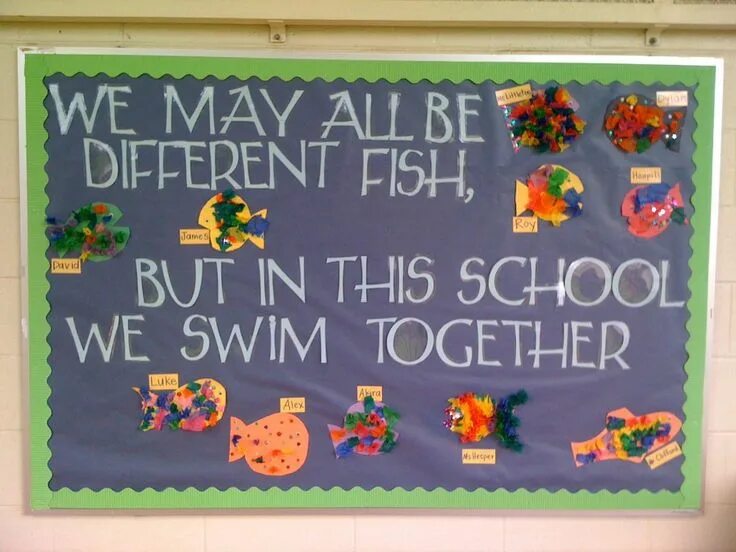 WE MAY ALL BE
DIFFERENT FISH,
BUT IN THIS SCHOOL
WE SWIM TOGETHER
Dylan
Hanpill
Roy
James
David
Luke
Alex
Akira
Ms Hesper
Mr Clifford